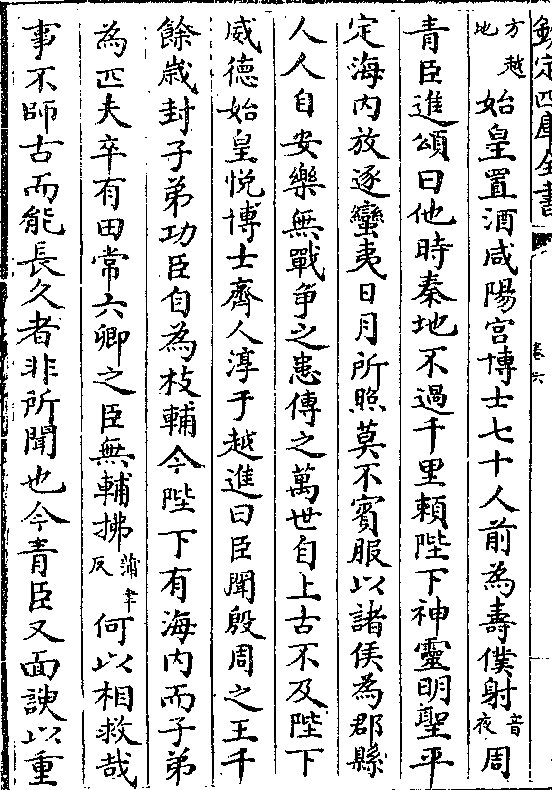 欽定四庫全書
卷六
方越
地
始皇置酒咸陽宮博士七十人前為壽僕射音夜周
青臣進頌曰他時秦地不過千里賴陛下神靈明聖平
定海內放逐蠻夷日月所照莫不賓服以諸侯為郡縣
人人自安樂無戰爭之患傳之萬世自上古不及陛下
威德始皇悅博士齊人淳于越進曰臣聞殷周之王千
餘歲封子弟功臣自為枝輔今陛下有海內而子弟
為匹夫卒有田常六卿之臣無輔拂蒲筆反何以相救哉
事不師古而能長久者非所聞也今青臣又面諛以重